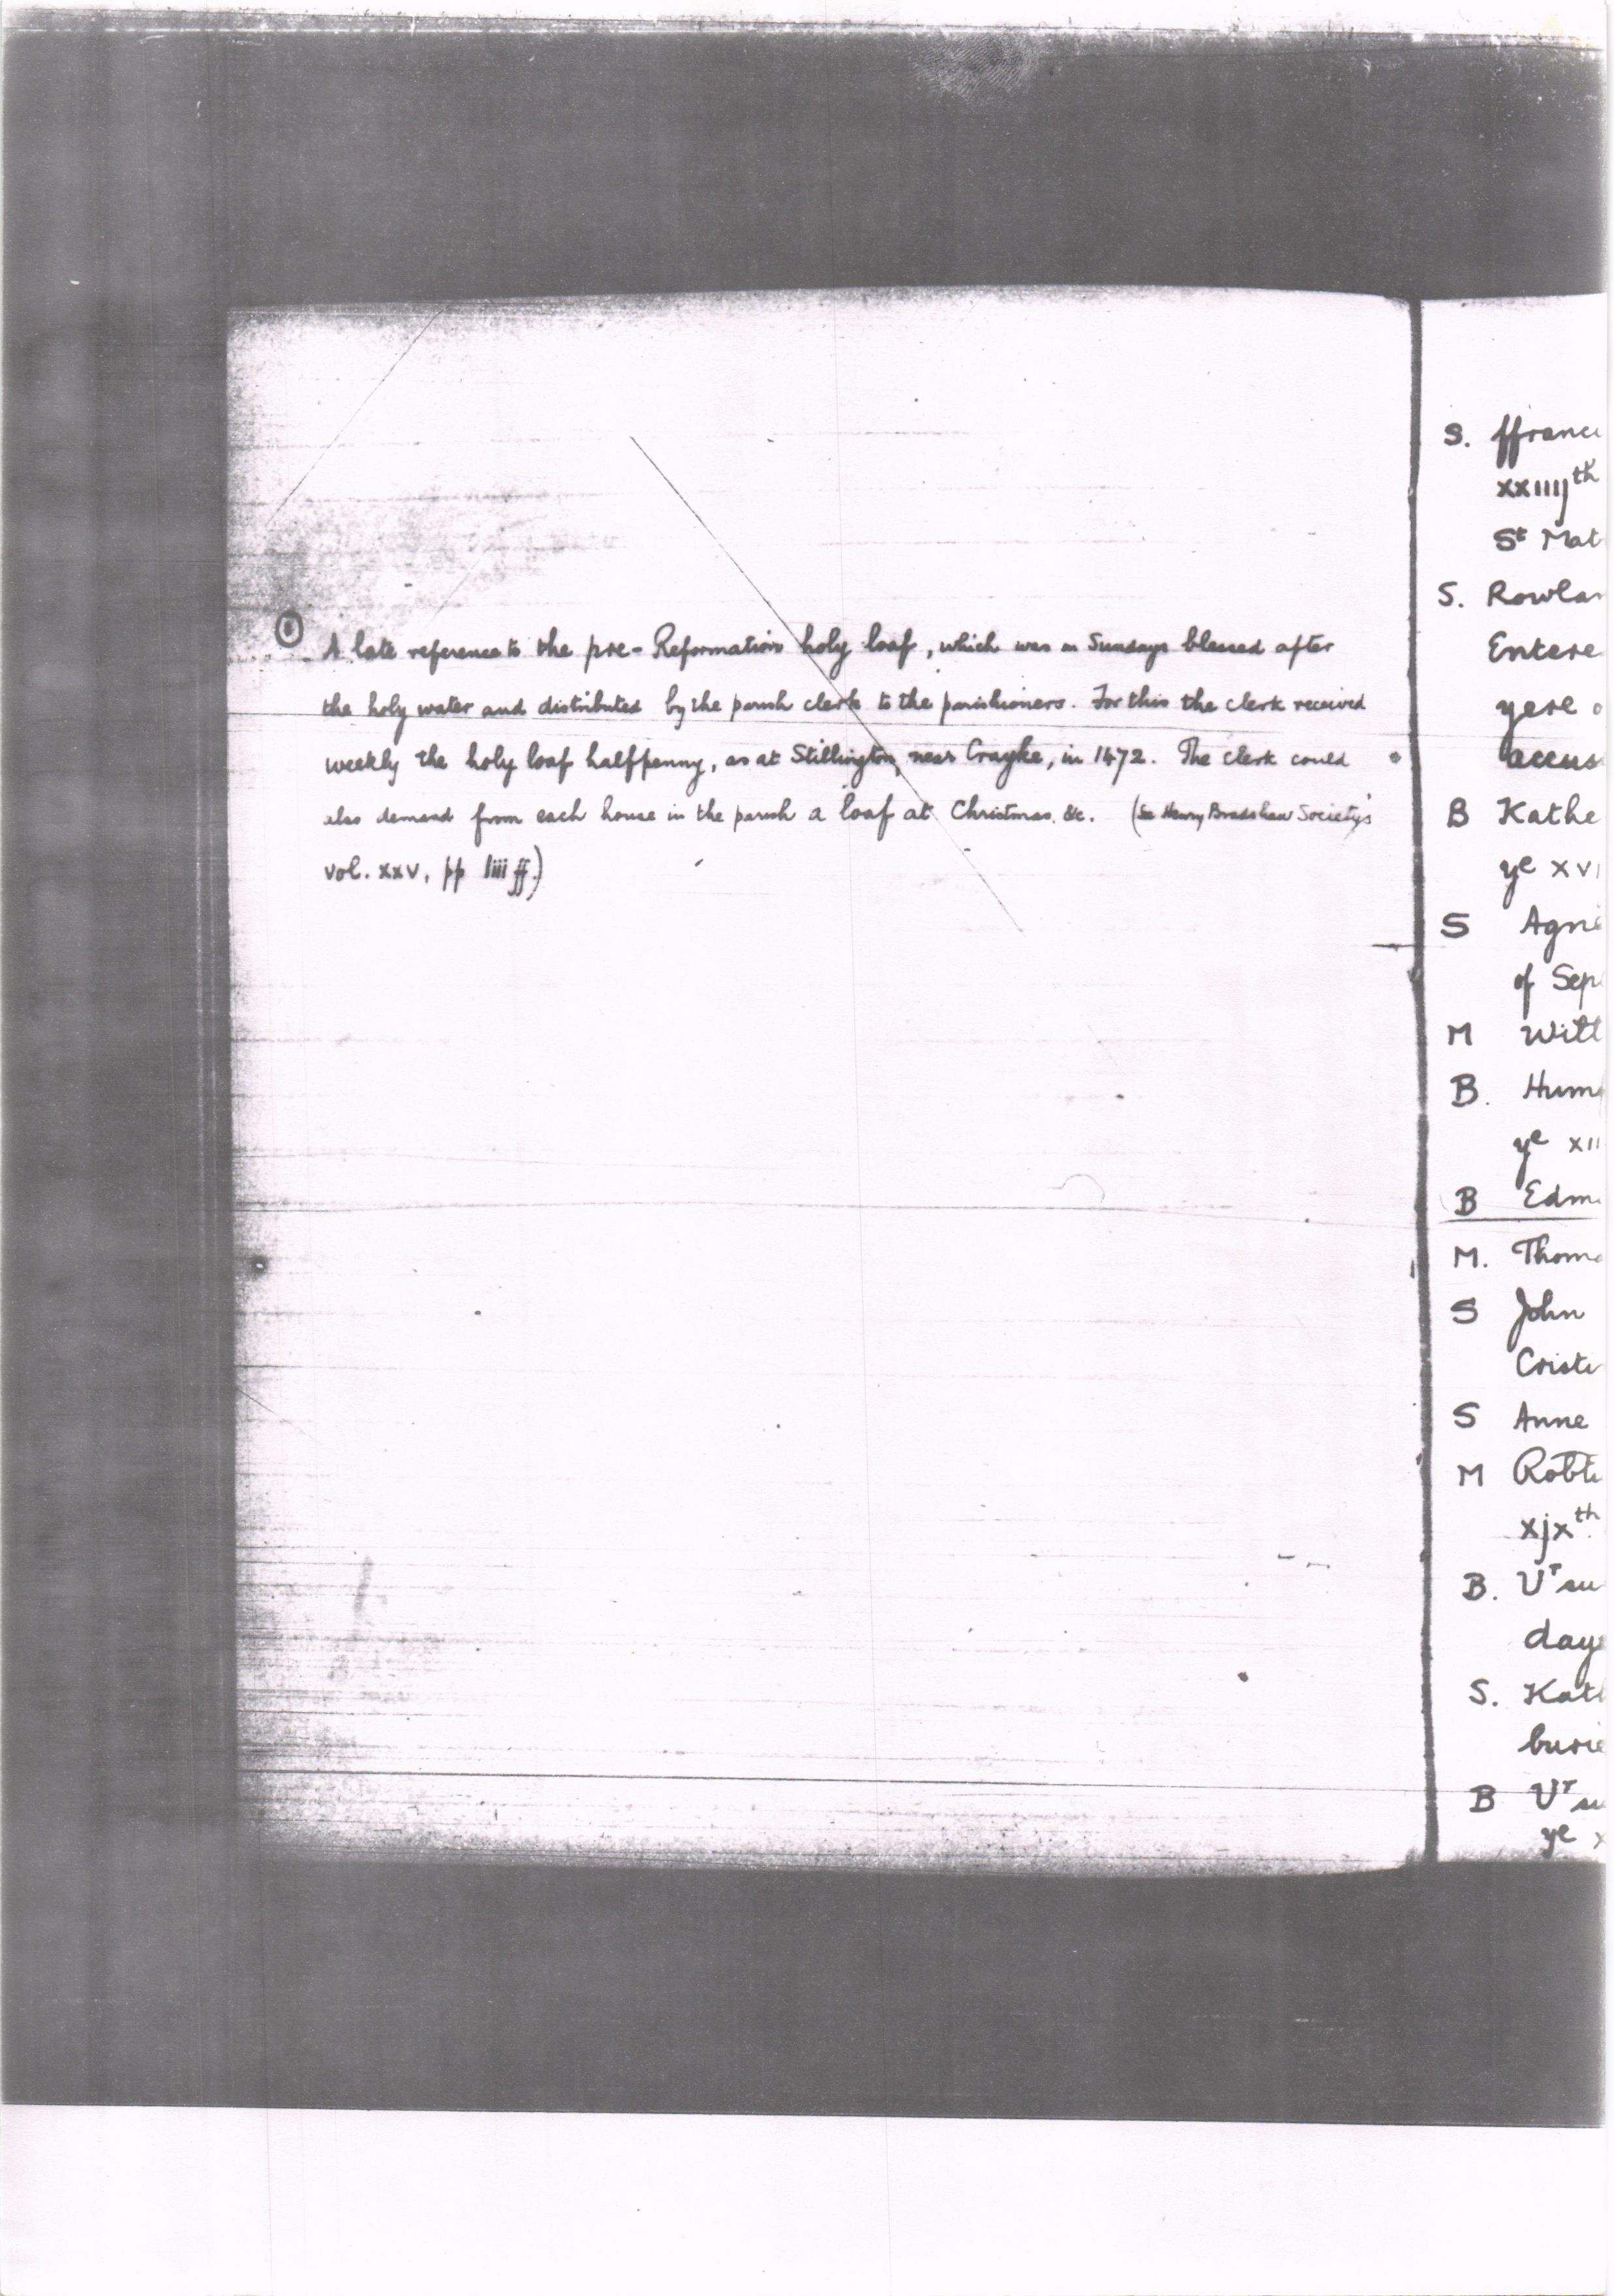 A late reference to the pre-Reformation holy loaf, which was on Sundays blessed after
the holy water and distributed by the parish clerk to the parishioners. For this the clerk received
weekly the holy loaf halfpenny, as at Stillington, near Crayke, in 1472. The clerk could
also demand from each house in the parish a loaf at Christmas. &c. (See Henry Bradshaw Society's
vol. xxv, pp liii ff.)
S. ffranci
xxiiijth
St Mat
S. Rowlan
Entere
yere o
accus
B Kathe
ye xvi
S Agne
of Sep
M Will
B. Hum
ye xii
B Edm
M. Thom
S John
Criste
S Anne
M Robt
xjxth
B. Ursu
daye
S. Kat
burie
B Ursu
ye x